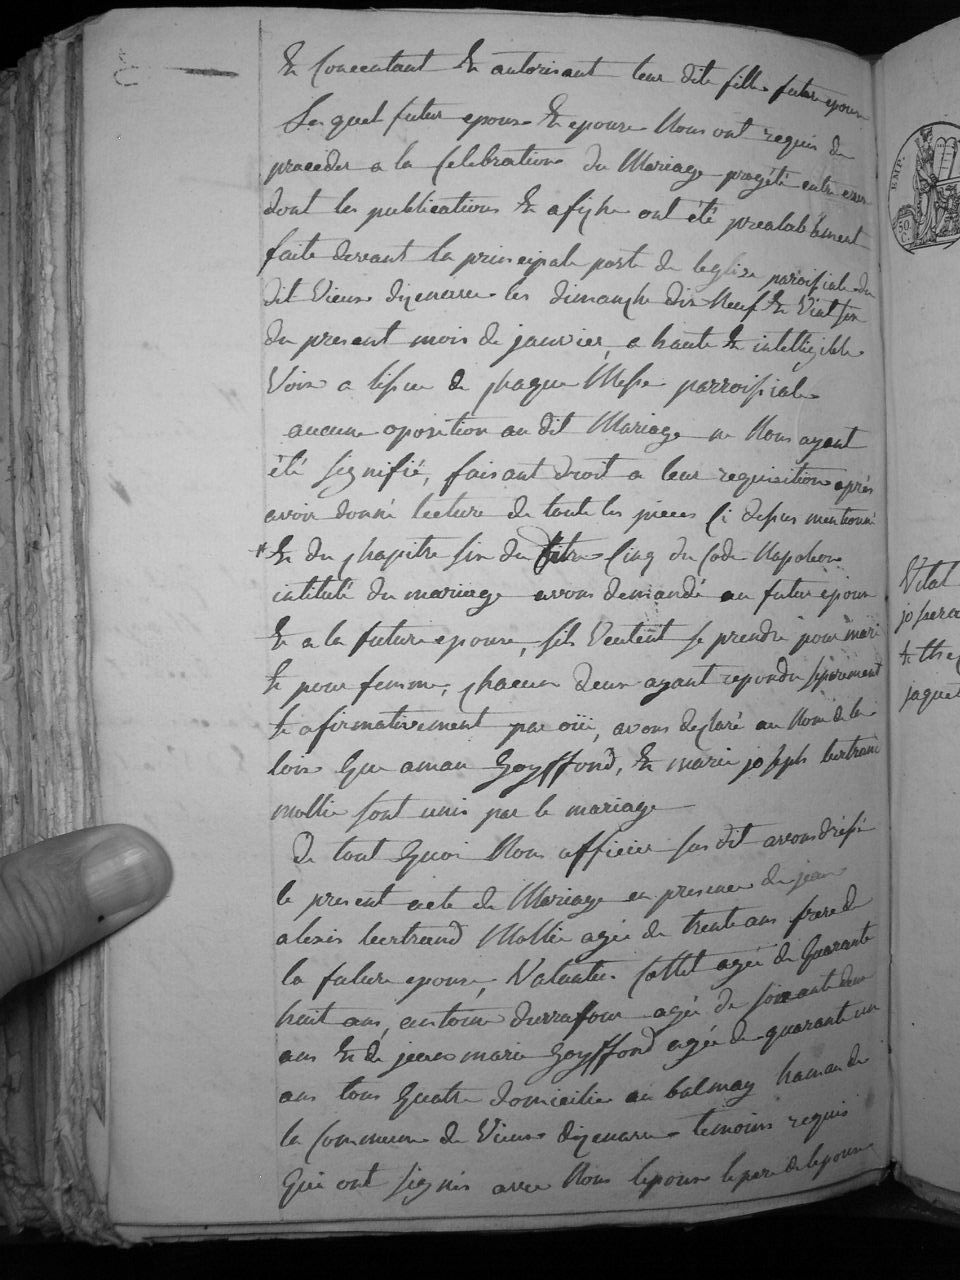 Et Concentant Et autorisant leur dite fille future epouse
Les quel futur epoux Et epouse Nous ont requis de
proceder a la Celebration du Mariage progété entre eux
dont les publications Et afiche ont été prealablement
faite devant la principale porte de leglise paroisiale du
dit Vieux dizenave les dimanche dix Neuf Et Vint six
du present mois de janvier, a haute Et intelligible
Voix a lissue de chaque Messe parroissiale
aucune oposition au dit Mariage ne Nous ayant
été signifié, faisant droit a leur requisition après
avoir donné lecture de toute les pieces Ci dessus mentionné
Et du chapitre six du titre Cinq du Code Napoleon
intitulé du mariage avons demandé au futur epoux
Et a la future epouse, sils Veulent se prendre pour mari
Et pour femme, chacun deux ayant repondu séparément
Et afirmativement par oüi, avons declaré au Nom de la
loix Que aman Goyffond, Et marie joseph bertrand
mollie sont unis par le mariage
De tout Quoi Nous officier sus dit avons dréssé
le present acte de Mariage en presence de jean
alexis bertrand Mollie agée de trente ans frere de
la future epouse, Valantin Collet agée de Quarante
huit ans, antoine durrafour agée de soixante deux
ans Et de jean marie Goyffond agée de quarante un
ans tous Quatre domicilie au balmay hamau de
la Commune de Vieux dizenave temoins requis
Qui ont signés avec Nous lepoux le pere de lepouse
EMP.
50
C.
Vital
josera
Et the
jaquet